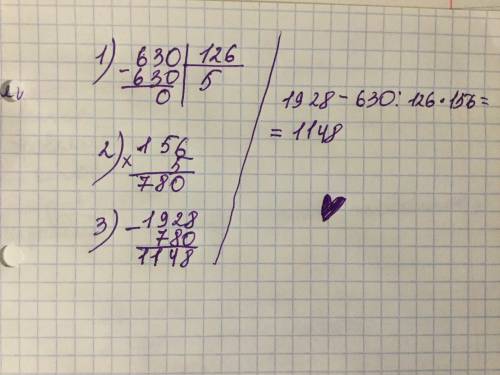 1) - 630 | 126
630 | 5
0
2) × 156
5
780
3) - 1928
780
1148
1928 - 630 : 126 · 156 =
= 1148